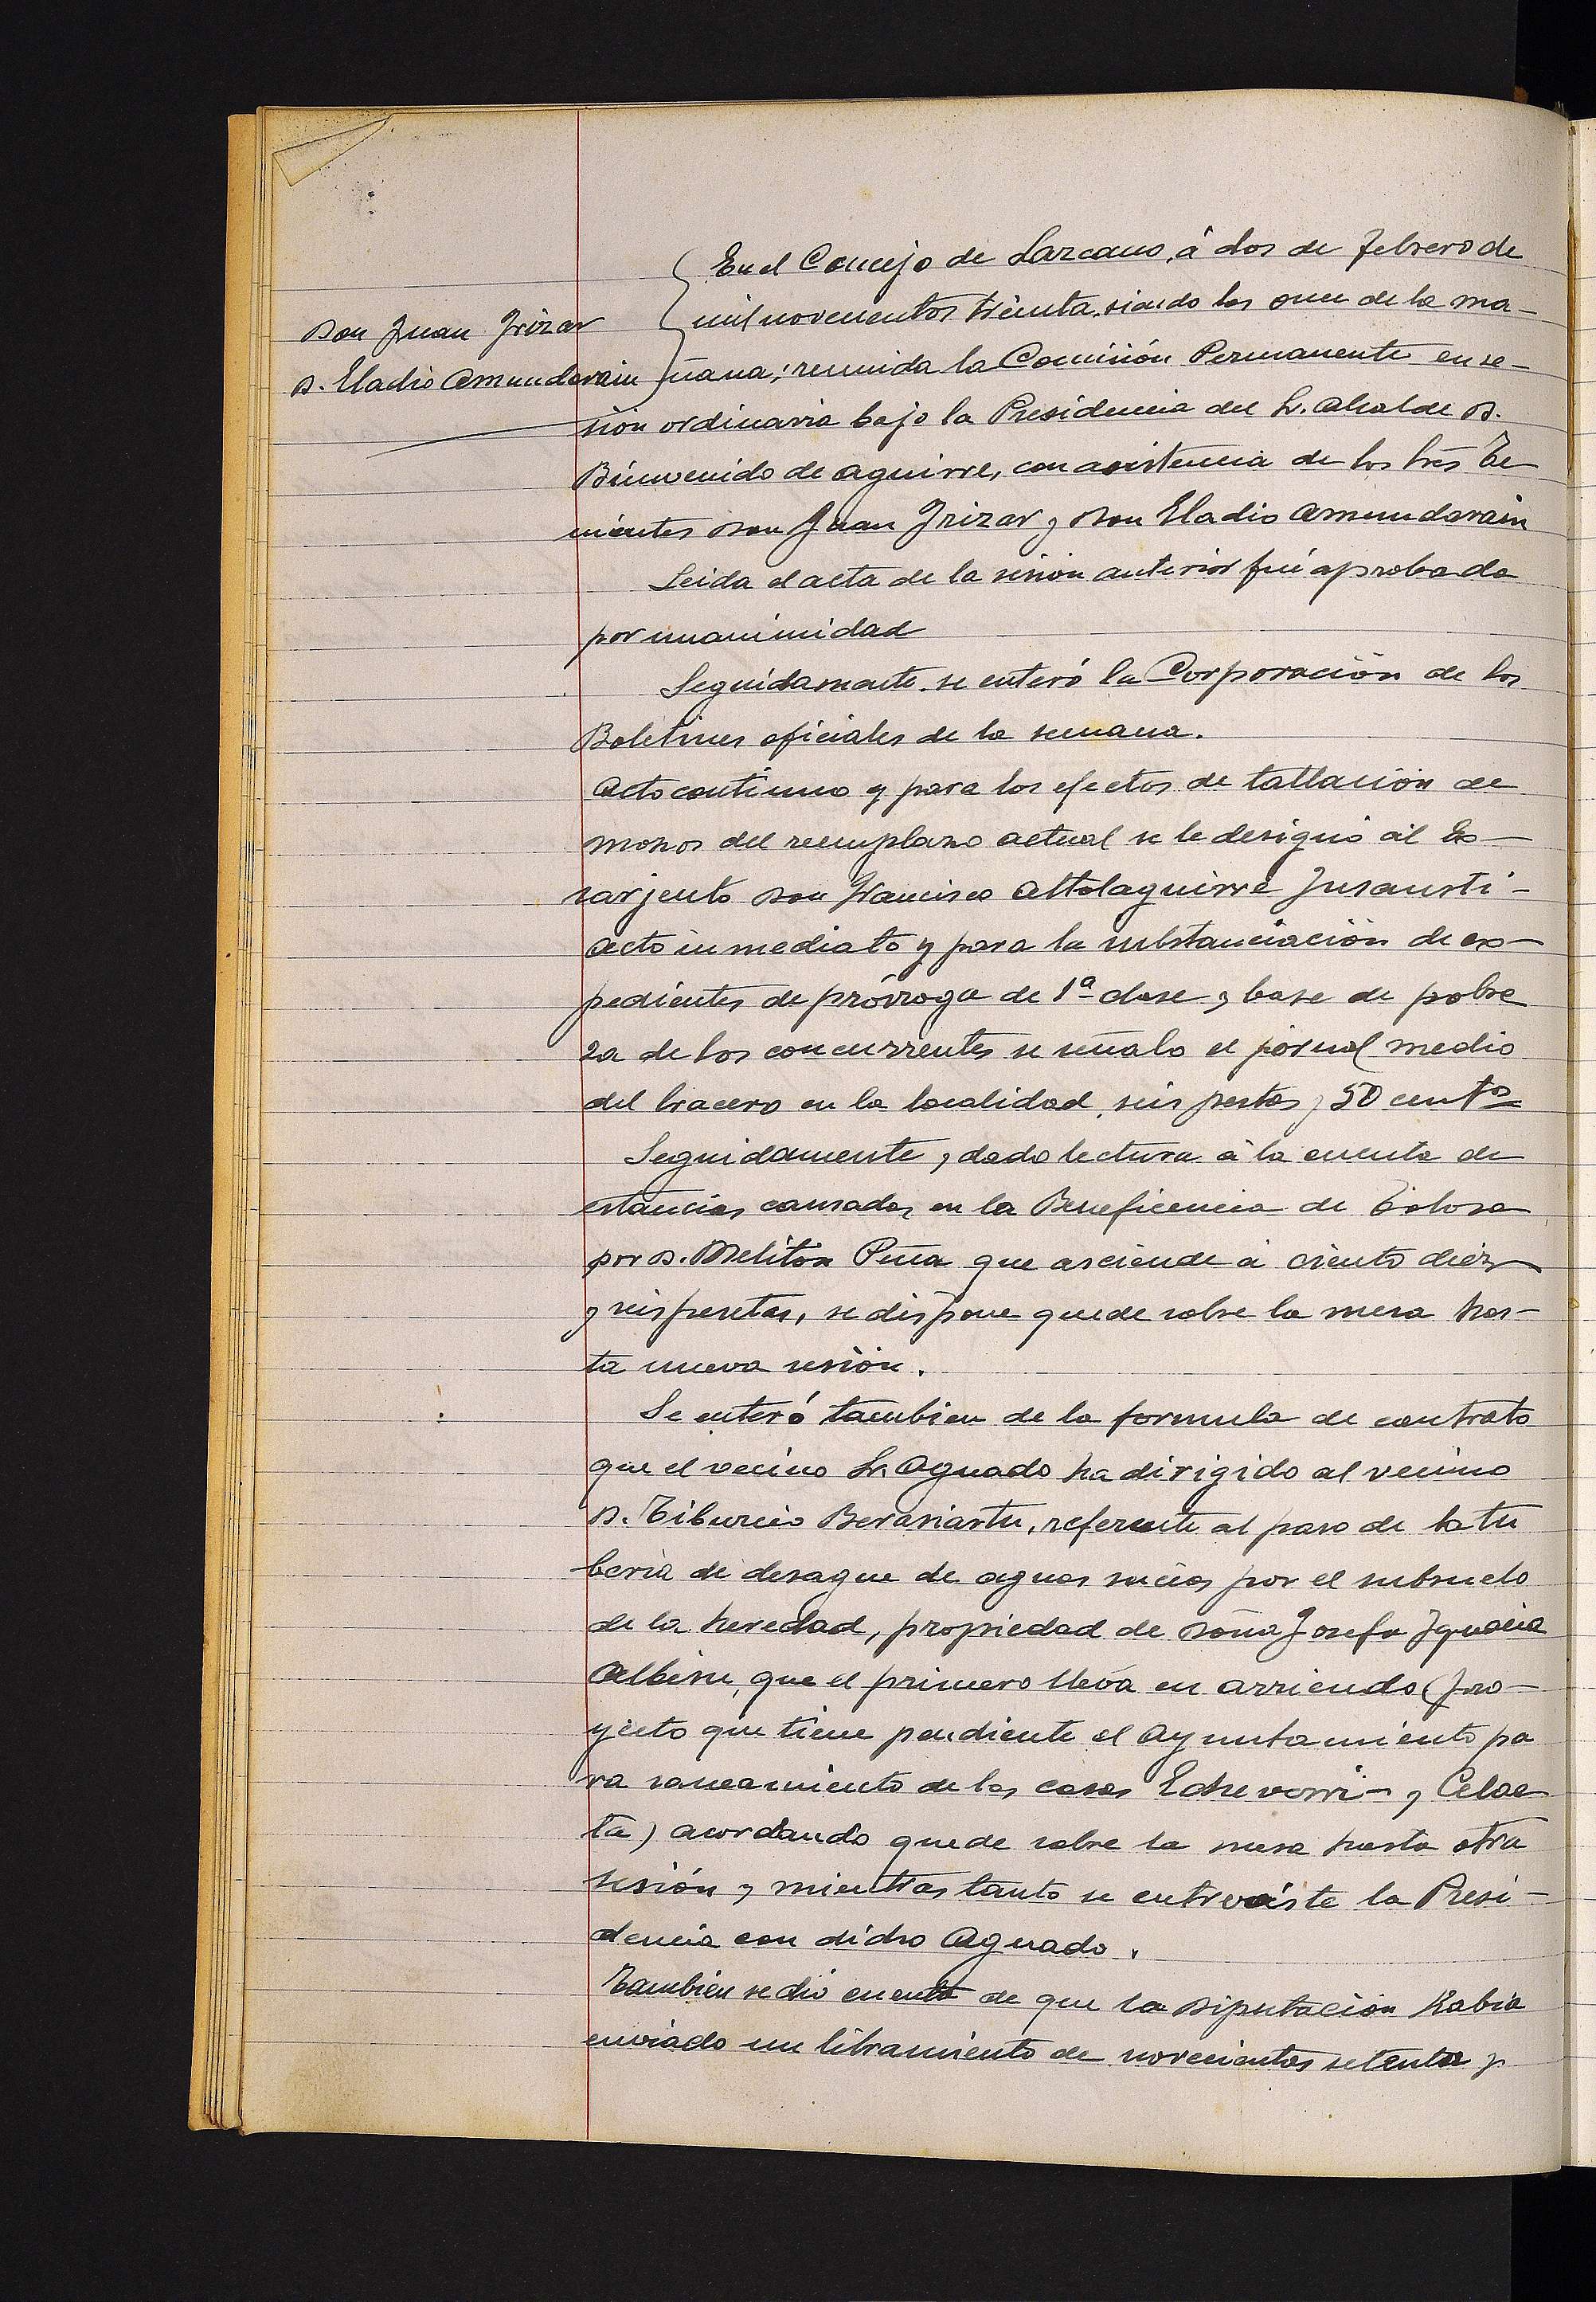 Don Juan Irizar
D. Eladio Amundarain
En el Concejo de Lazcano, á dos de febrero de
mil novecientos treinta, siendo las once de la ma-
ñana; reunida la Comisión Permanente en se-
sión ordinaria bajo la Presidencia del Sr. Alcalde D.
Bienvenido de Aguirre, con asistencia de los tres Te
nientes Don Juan Irizar y Don Eladio Amundarain
Leida el acta de la sesión anterior fué aprobada
por unanimidad
Seguidamente se enteró la Corporación de los
Boletines oficiales de la semana.
Acto continuo y para los efectos de tallación de
mozos del reemplazo actual se le designó al Ex-
sarjento Don Francisco Altolaguirre Insausti-
Acto inmediato y para la substanciación de ex-
pedientes de prórroga de 1ª clase y base de pobre
za de los concurrentes se señaló el jornal medio
del bracero en la localidad, seis pestas y 50 centos
Seguidamente, dado lectura á la cuenta de
estancias causadas en la Beneficencia de Tolosa
por D. Melitón Peña que asciende á ciento diez
y seis pesetas, se dispone quede sobre la mesa has-
ta nueva sesión.
Se enteró tambien de la formula de contrato
que el vecino Sr. Aguado ha dirigido al vecino
D. Tiburcio Berasiartu, referente al paso de la tu
bería de desague de aguas sucias por el subsuelo
de la heredad, propiedad de Doña Josefa Ignacia
Albisu, que el primero lleva en arriendo (pro-
yecto que tiene pendiente el Ayuntamiento pa
ra saneamiento de las casas Echeverri- y Celae
ta) acordando quede sobre la mesa hasta otra
sesión y mientras tanto se entreviste la Presi-
dencia con dicho Aguado.
Tambien se dió cuenta de que la Diputación habia
enviado un libramiento de novecientas setenta y